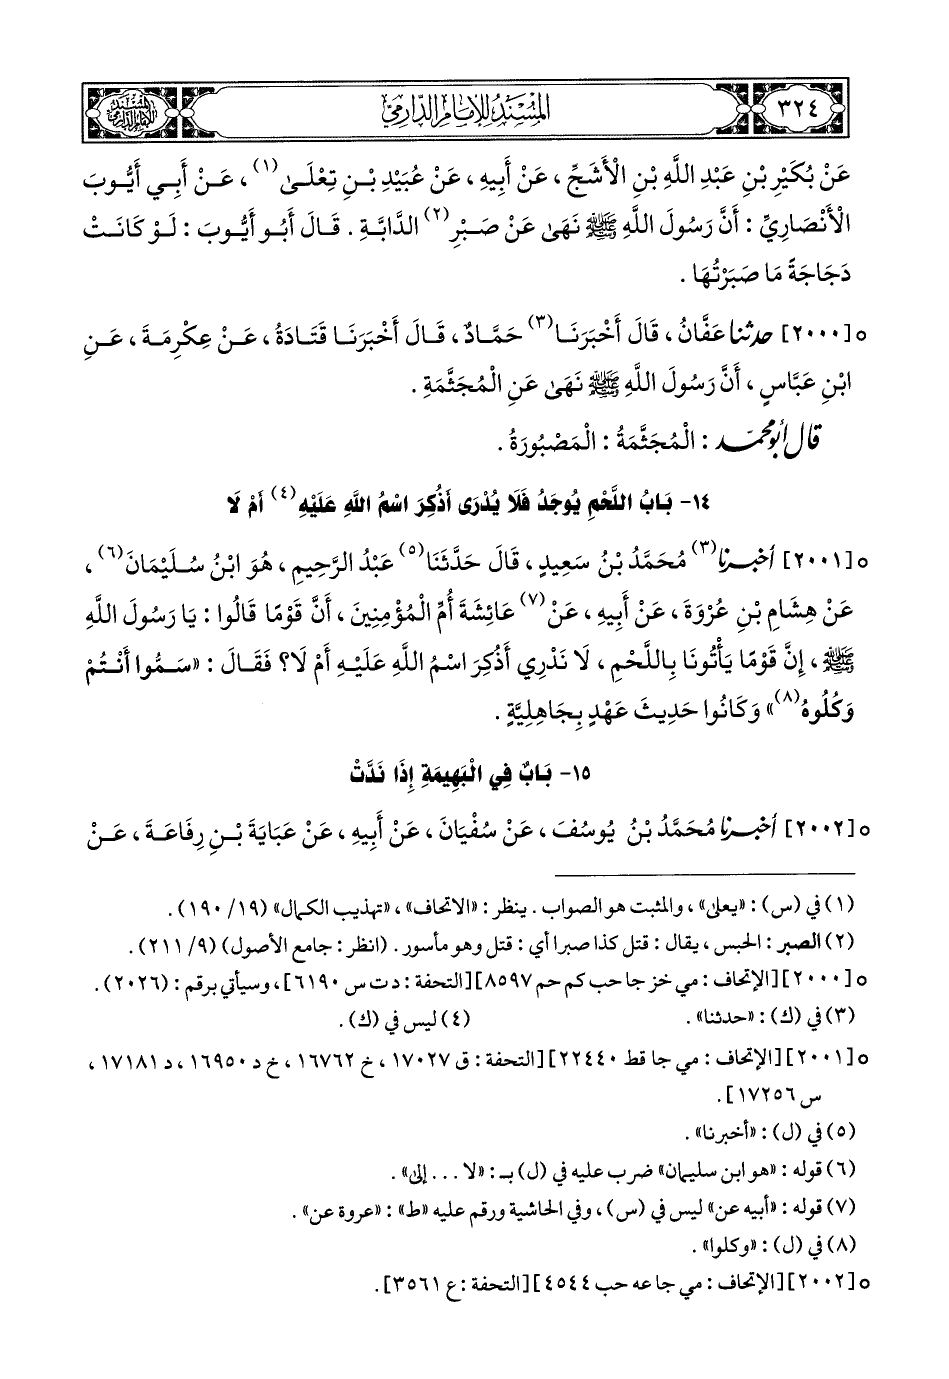 ٣٢٤
المسند للإمام الدارمي
المسند للإمام الدارمي
عَنْ بُكَيْرِ بْنِ عَبْدِ اللَّهِ بْنِ الْأَشَجِّ ، عَنْ أَبِيهِ ، عَنْ عُبَيْدِ بْنِ تِعْلَىٰ(١) ، عَنْ أَبِي أَيُّوبَ
الْأَنْصَارِيِّ : أَنَّ رَسُولَ اللَّهِ ﷺ نَهَىٰ عَنْ صَبْرِ(٢) الدَّابَّةِ . قَالَ أَبُو أَيُّوبَ : لَوْ كَانَتْ
دَجَاجَةً مَا صَبَرْتُهَا .
○ [٢٠٠٠] حدثنا عَفَّانُ ، قَالَ أَخْبَرَنَا(٣) حَمَّادٌ ، قَالَ أَخْبَرَنَا قَتَادَةُ ، عَنْ عِكْرِمَةَ ، عَنِ
ابْنِ عَبَّاسٍ ، أَنَّ رَسُولَ اللَّهِ ﷺ نَهَىٰ عَنِ الْمُجَثَّمَةِ .
قال أبو محمد : الْمُجَثَّمَةُ : الْمَصْبُورَةُ .
١٤- بَابُ اللَّحْمِ يُوجَدُ فَلَا يُدْرَى أَذُكِرَ اسْمُ اللَّهِ عَلَيْهِ(٤) أَمْ لَا
○ [٢٠٠١] أخبرنا(٣) مُحَمَّدُ بْنُ سَعِيدٍ ، قَالَ حَدَّثَنَا(٥) عَبْدُ الرَّحِيمِ ، هُوَ ابْنُ سُلَيْمَانَ(٦) ،
عَنْ هِشَامِ بْنِ عُرْوَةَ ، عَنْ أَبِيهِ ، عَنْ(٧) عَائِشَةَ أُمِّ الْمُؤْمِنِينَ ، أَنَّ قَوْمًا قَالُوا : يَا رَسُولَ اللَّهِ
ﷺ ، إِنَّ قَوْمًا يَأْتُونَا بِاللَّحْمِ ، لَا نَدْرِي أَذُكِرَ اسْمُ اللَّهِ عَلَيْهِ أَمْ لَا؟ فَقَالَ : «سَمُّوا أَنْتُمْ
وَكُلُوهُ(٨)» وَكَانُوا حَدِيثَ عَهْدٍ بِجَاهِلِيَّةٍ .
١٥- بَابٌ فِي الْبَهِيمَةِ إِذَا نَدَّتْ
○ [٢٠٠٢] أخبرنا مُحَمَّدُ بْنُ يُوسُفَ ، عَنْ سُفْيَانَ ، عَنْ أَبِيهِ ، عَنْ عَبَايَةَ بْنِ رِفَاعَةَ ، عَنْ
(١) في (س) : «يعلى» ، والمثبت هو الصواب . ينظر : «الاتحاف» ، «تهذيب الكمال» (١٩/ ١٩٠) .
(٢) الصبر : الحبس ، يقال : قتل كذا صبرا أي : قتل وهو مأسور . (انظر : جامع الأصول) (٩/ ٢١١) .
○ [٢٠٠٠] [الإتحاف : مي خز جا حب كم حم ٨٥٩٧] [التحفة : د ت س ٦١٩٠] ، وسيأتي برقم : (٢٠٢٦) .
(٣) في (ك) : «حدثنا» . (٤) ليس في (ك) .
○ [٢٠٠١] [الإتحاف : مي جا قط ٢٢٤٤٠] [التحفة : ق ١٧٠٢٧ ، خ ١٦٧٦٢ ، خ د ١٦٩٥٠ ، د ١٧١٨١ ،
س ١٧٢٥٦] .
(٥) في (ل) : «أخبرنا» .
(٦) قوله : «هو ابن سليمان» ضرب عليه في (ل) بـ : «لا . . . إلى» .
(٧) قوله : «أبيه عن» ليس في (س) ، وفي الحاشية ورقم عليه «ط» : «عروة عن» .
(٨) في (ل) : «وكلوا» .
○ [٢٠٠٢] [الإتحاف : مي جا عه حب ٤٥٤٤] [التحفة : ع ٣٥٦١] .